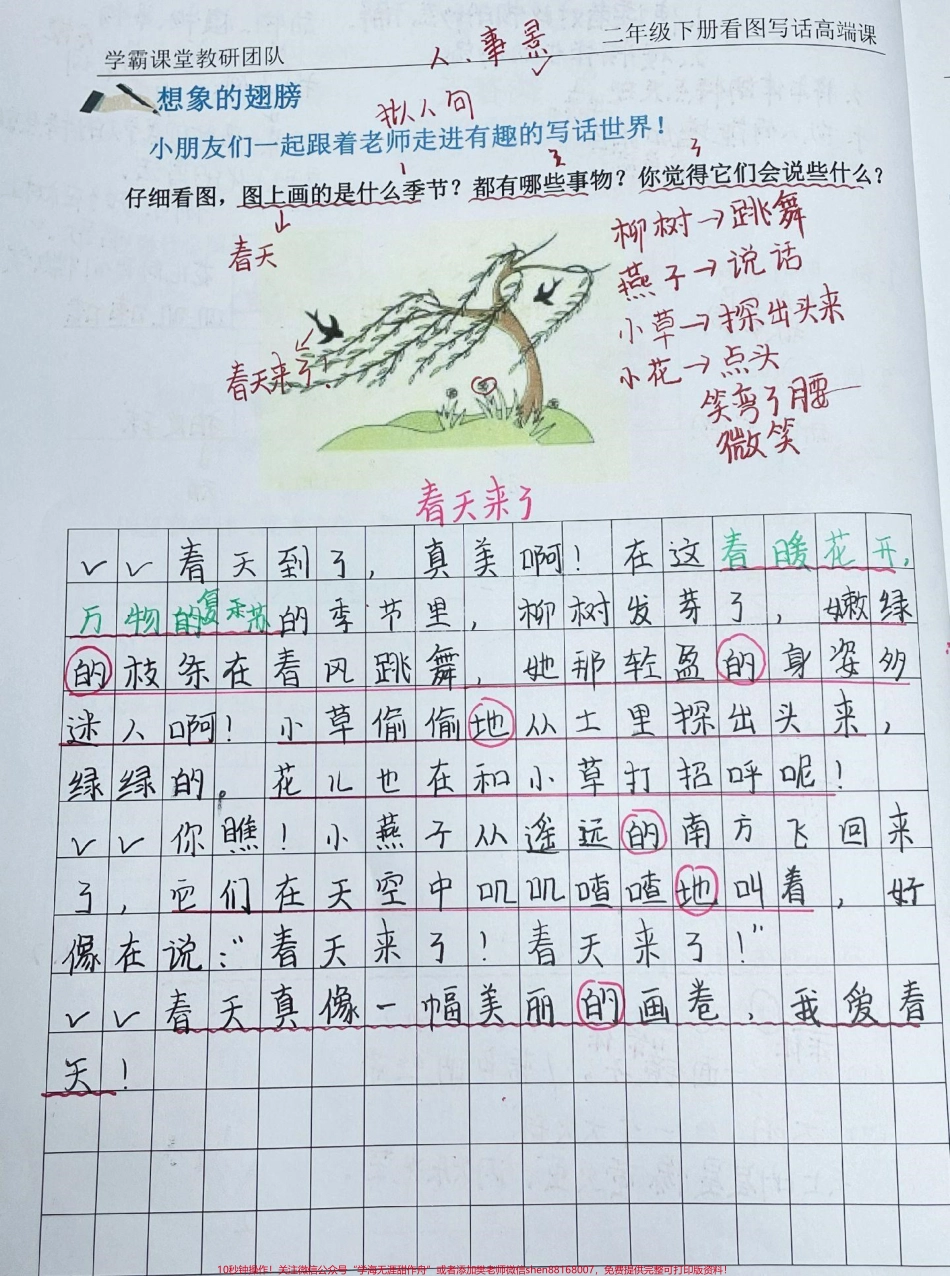 学霸课堂教研团队
人、事景
二年级下册看图写话高端课
想象的翅膀
拟人句
小朋友们一起跟着老师走进有趣的写话世界！
1 2 3
仔细看图，图上画的是什么季节？都有哪些事物？你觉得它们会说些什么？
春天
柳树→跳舞
燕子→说话
小草→探出头来
春天来了！
小花→点头
笑弯了腰
微笑
春天来了
春天到了，真美啊！在这春暖花开，
万物的复苏的季节里，柳树发芽了，嫩绿
的枝条在春风跳舞，她那轻盈的身姿多
迷人啊！小草偷偷地从土里探出头来，
绿绿的。花儿也在和小草打招呼呢！
你瞧！小燕子从遥远的南方飞回来
了，它们在天空中叽叽喳喳地叫着，好
像在说：“春天来了！春天来了！”
春天真像一幅美丽的画卷，我爱春
天！
10秒钟操作！关注微信公众号“学海无涯甜作舟”或者添加樊老师微信shen88168007，免费提供完整可打印版资料！